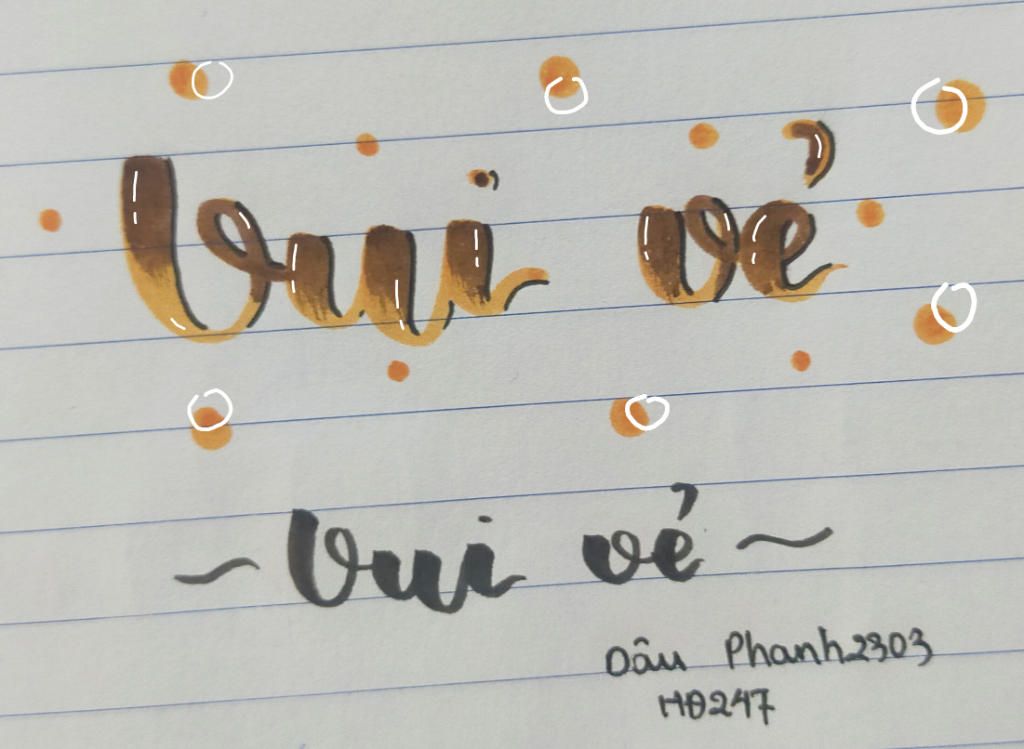 Vui vẻ
~ Vui vẻ ~
Dâu Phanh2303
HĐ247